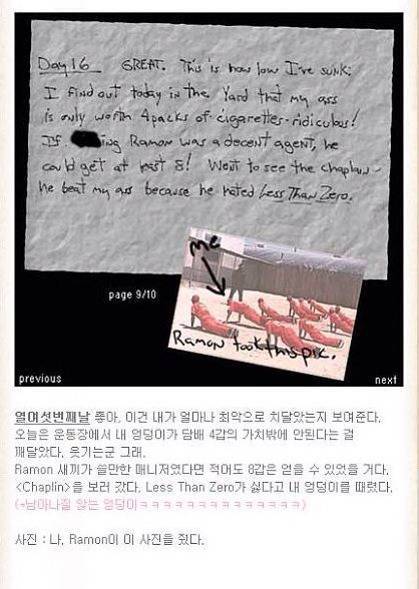 Day 16 GREAT. This is how low I've sunk:
I find out today in the Yard that my ass
is only worth 4 packs of cigarettes - ridiculous!
If ing Ramon was a decent agent, he
could get at least 8! Went to see the chaplain -
he beat my ass because he hated Less Than Zero.
me
Ramon took this pic.
page 9/10
previous
next
열여섯번째날 좋아, 이건 내가 얼마나 최악으로 치달았는지 보여준다.
오늘은 운동장에서 내 엉덩이가 담배 4갑의 가치밖에 안된다는 걸
깨달았다. 웃기는군 그래.
Ramon 새끼가 쓸만한 매니저였다면 적어도 8갑은 얻을 수 있었을 거다.
<Chaplin>을 보러 갔다. Less Than Zero가 싫다고 내 엉덩이를 때렸다.
(+남아나질 않는 엉덩이ㅋㅋㅋㅋㅋㅋㅋㅋㅋㅋㅋㅋㅋㅋ)
사진 : 나, Ramon이 이 사진을 찍었다.